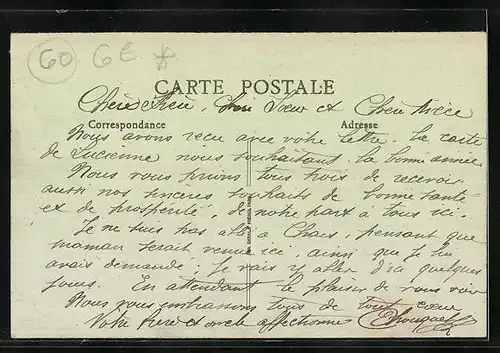 60 6E *
CARTE POSTALE
Correspondance Adresse
Sœur et Cher Frère
Nous avons reçu avec votre lettre, la carte
de Lucienne nous souhaitant la bonne année
Nous vous prions tous trois de recevoir
aussi nos sincères souhaits de bonne santé
et de prospérité, de notre part à tous ici.
Je ne suis pas allé à pensant que
maman serait venue ici, ainsi que je lui
avais demandé, je vais y aller d'ici quelques
jours. En attendant le plaisir de vous voir
Nous vous embrassons tous de tout cœur
Votre frère et oncle affectionné